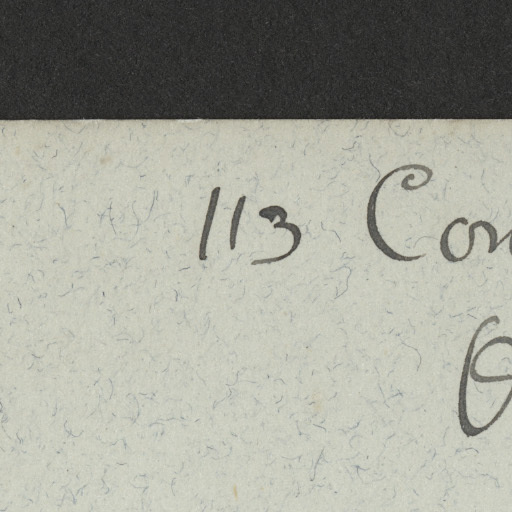 113 Con